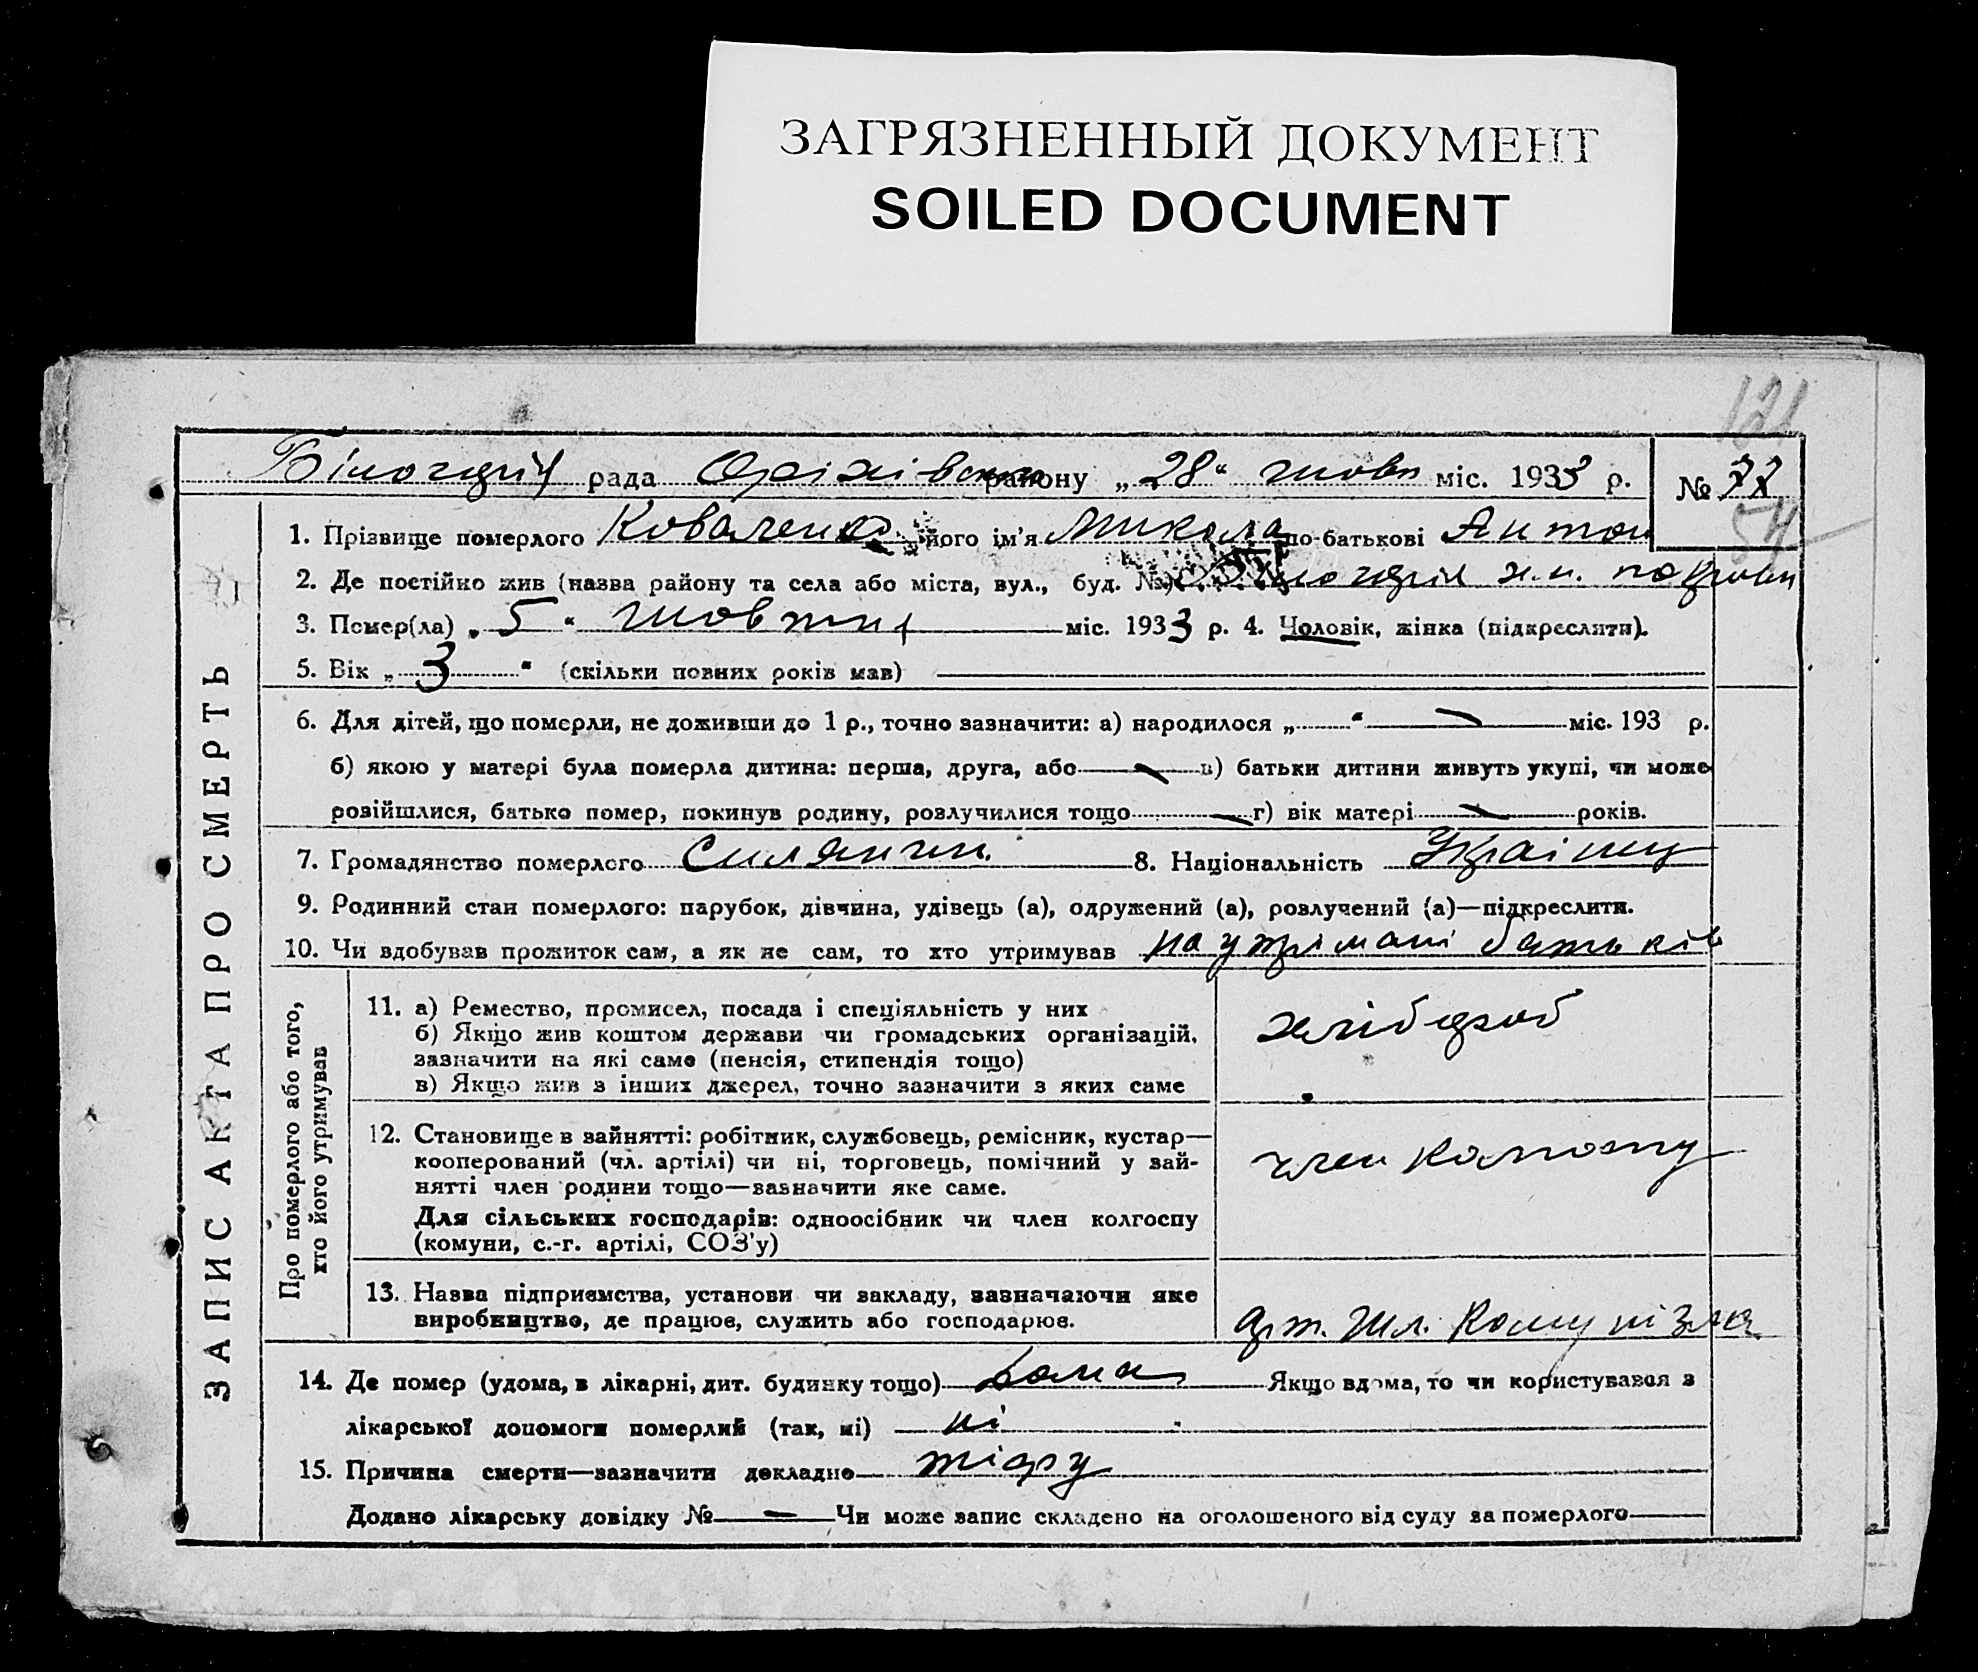 ЗАГРЯЗНЕННЫЙ ДОКУМЕНТ
SOILED DOCUMENT
121
рада Оріхівського району „28“ жовт міс. 1933 р. №
54
1. Прізвище померлого Коваленко його ім'я Микола по-батькові Антон
2. Де постійно жив (назва району та села або міста, вул., буд. №)
3. Помер(ла) „5“ жовтня міс. 1933 р. 4. Чоловік, жінка (підкреслити).
5. Вік „3“ (скільки повних років мав)
6. Для дітей, що померли, не доживши до 1 р., точно зазначити: а) народилося „ “ — міс. 193 р.
б) якою у матері була померла дитина: перша, друга, або — в) батьки дитини живуть укупі, чи може
розійшлися, батько помер, покинув родину, розлучилися тощо — г) вік матері — років.
7. Громадянство померлого Силянин 8. Національність Украінец
9. Родинний стан померлого: парубок, дівчина, удівець (а), одружений (а), розлучений (а)—підкреслити.
10. Чи вдобував прожиток сам, а як не сам, то хто утримував на утримані батьків
ЗАПИС АКТА ПРО СМЕРТЬ
Про померлого або того,
хто його утримував
11. а) Ремество, промисел, посада і спеціяльність у них
б) Якщо жив коштом держави чи громадських організацій,
зазначити на які саме (пенсія, стипендія тощо)
в) Якщо жив з інших джерел, точно зазначити з яких саме
хлібороб
12. Становище в зайнятті: робітник, службовець, ремісник, кустар—
кооперований (чл. артілі) чи ні, торговець, помічний у зай-
нятті член родини тощо—зазначити яке саме.
Для сільських господарів: одноосібник чи член колгоспу
(комуни, с.-г. артілі, СОЗ'у)
член колгоспу
13. Назва підприємства, установи чи закладу, зазначаючи яке
виробництво, де працює, служить або господарює.
арт. Шл. Комунізма
14. Де помер (удома, в лікарні, дит. будинку тощо) дома Якщо вдома, то чи користувався з
лікарської допомоги померлий (так, ні) ні
15. Причина смерти—зазначити докладно
Додано лікарську довідку № — Чи може запис складено на оголошеного від суду за померлого